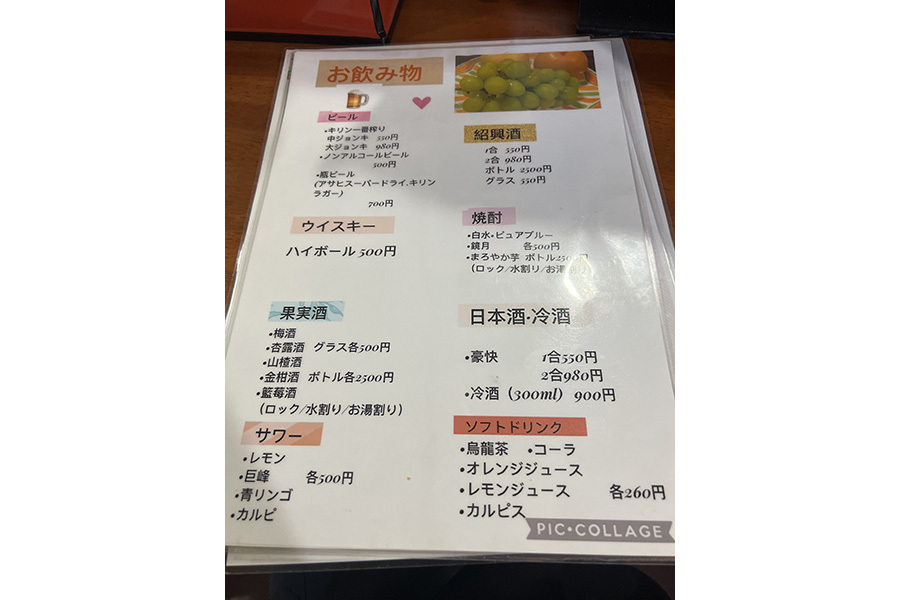 お飲み物
ビール
•キリン一番搾り
中ジョンキ 550円
大ジョンキ 980円
•ノンアルコールビール
500円
•瓶ビール
(アサヒスーパードライ､キリン
ラガー)
700円
ウイスキー
ハイボール 500円
果実酒
•梅酒
•杏露酒 グラス各500円
•山楂酒
•金柑酒 ボトル各2500円
•籃莓酒
（ロック/水割り/お湯割り）
サワー
•レモン
•巨峰 各500円
•青リンゴ
•カルピ
紹興酒
1合 550円
2合 980円
ボトル 2500円
グラス 550円
焼酎
•白水•ピュアブルー
•鏡月 各500円
•まろやか芋 ボトル250
（ロック/水割リ/お湯割り）
日本酒·冷酒
•豪快 1合550円
2合980円
•冷酒（300ml） 900円
ソフトドリンク
•烏龍茶 •コーラ
•オレンジジュース
•レモンジュース 各260円
•カルピス
PIC•COLLAGE